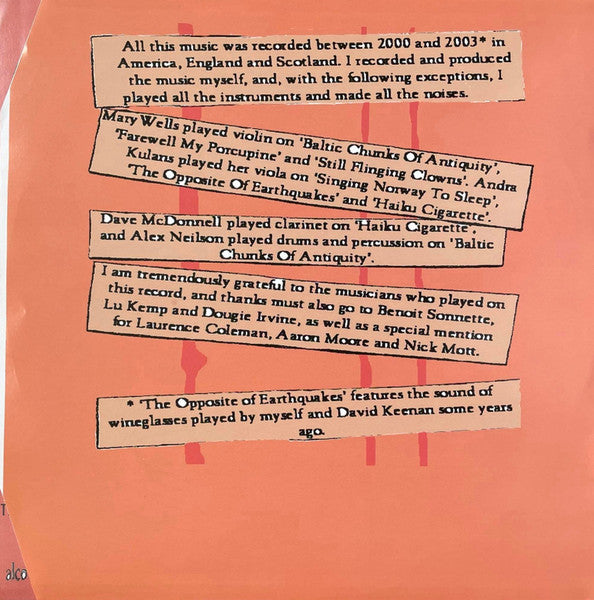 All this music was recorded between 2000 and 2003* in
America, England and Scotland. I recorded and produced
the music myself, and, with the following exceptions, I
played all the instruments and made all the noises.
Mary Wells played violin on 'Baltic Chunks Of Antiquity',
'Farewell My Porcupine' and 'Still Flinging Clowns'. Andra
Kulans played her viola on 'Singing Norway To Sleep',
'The Opposite Of Earthquakes' and 'Haiku Cigarette'.
Dave McDonnell played clarinet on 'Haiku Cigarette',
and Alex Neilson played drums and percussion on 'Baltic
Chunks Of Antiquity'.
I am tremendously grateful to the musicians who played on
this record, and thanks must also go to Benoit Sonnette,
Lu Kemp and Dougie Irvine, as well as a special mention
for Laurence Coleman, Aaron Moore and Nick Mott.
* 'The Opposite of Earthquakes' features the sound of
wineglasses played by myself and David Keenan some years
ago.
T
alco